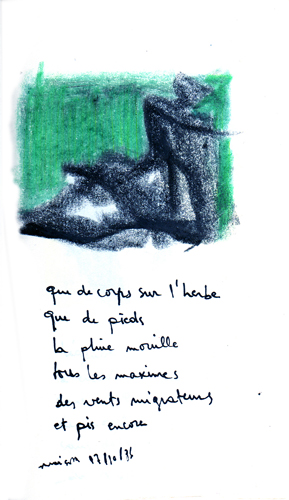 que de corps sur l'herbe
que de pieds
la pluie mouille
tous les maximes
des vents migrateurs
et pis encore